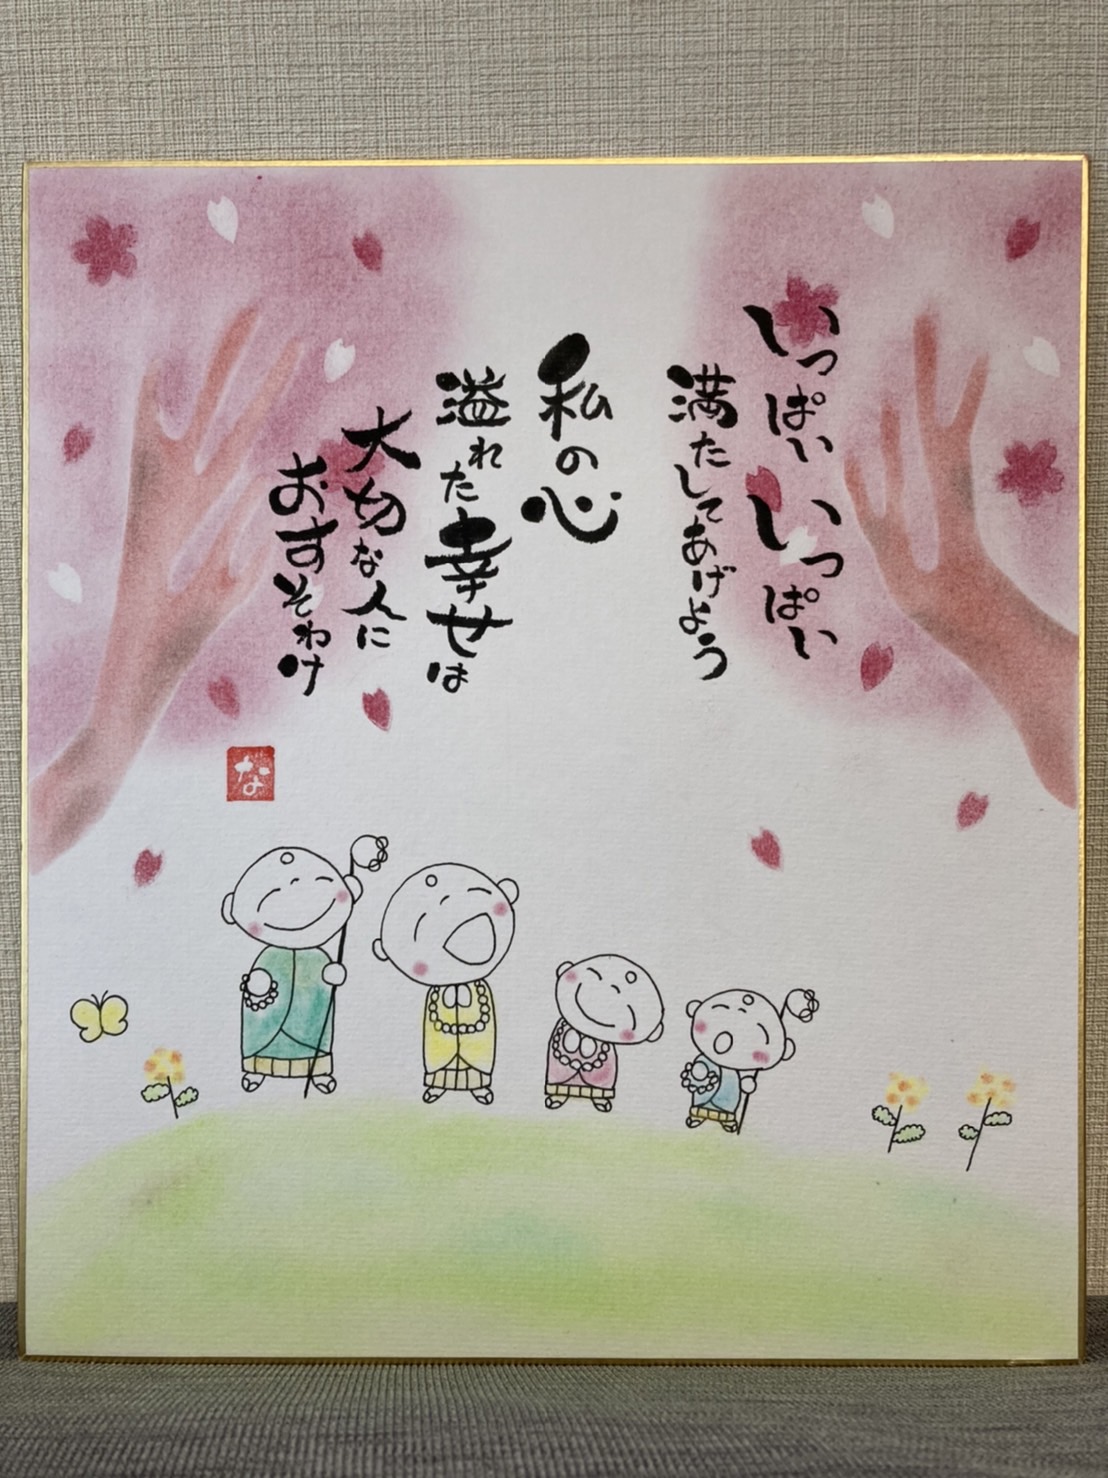 いっぱいいっぱい
満たしてあげよう
私の心
溢れた幸せは
大切な人に
おすそわけ
な